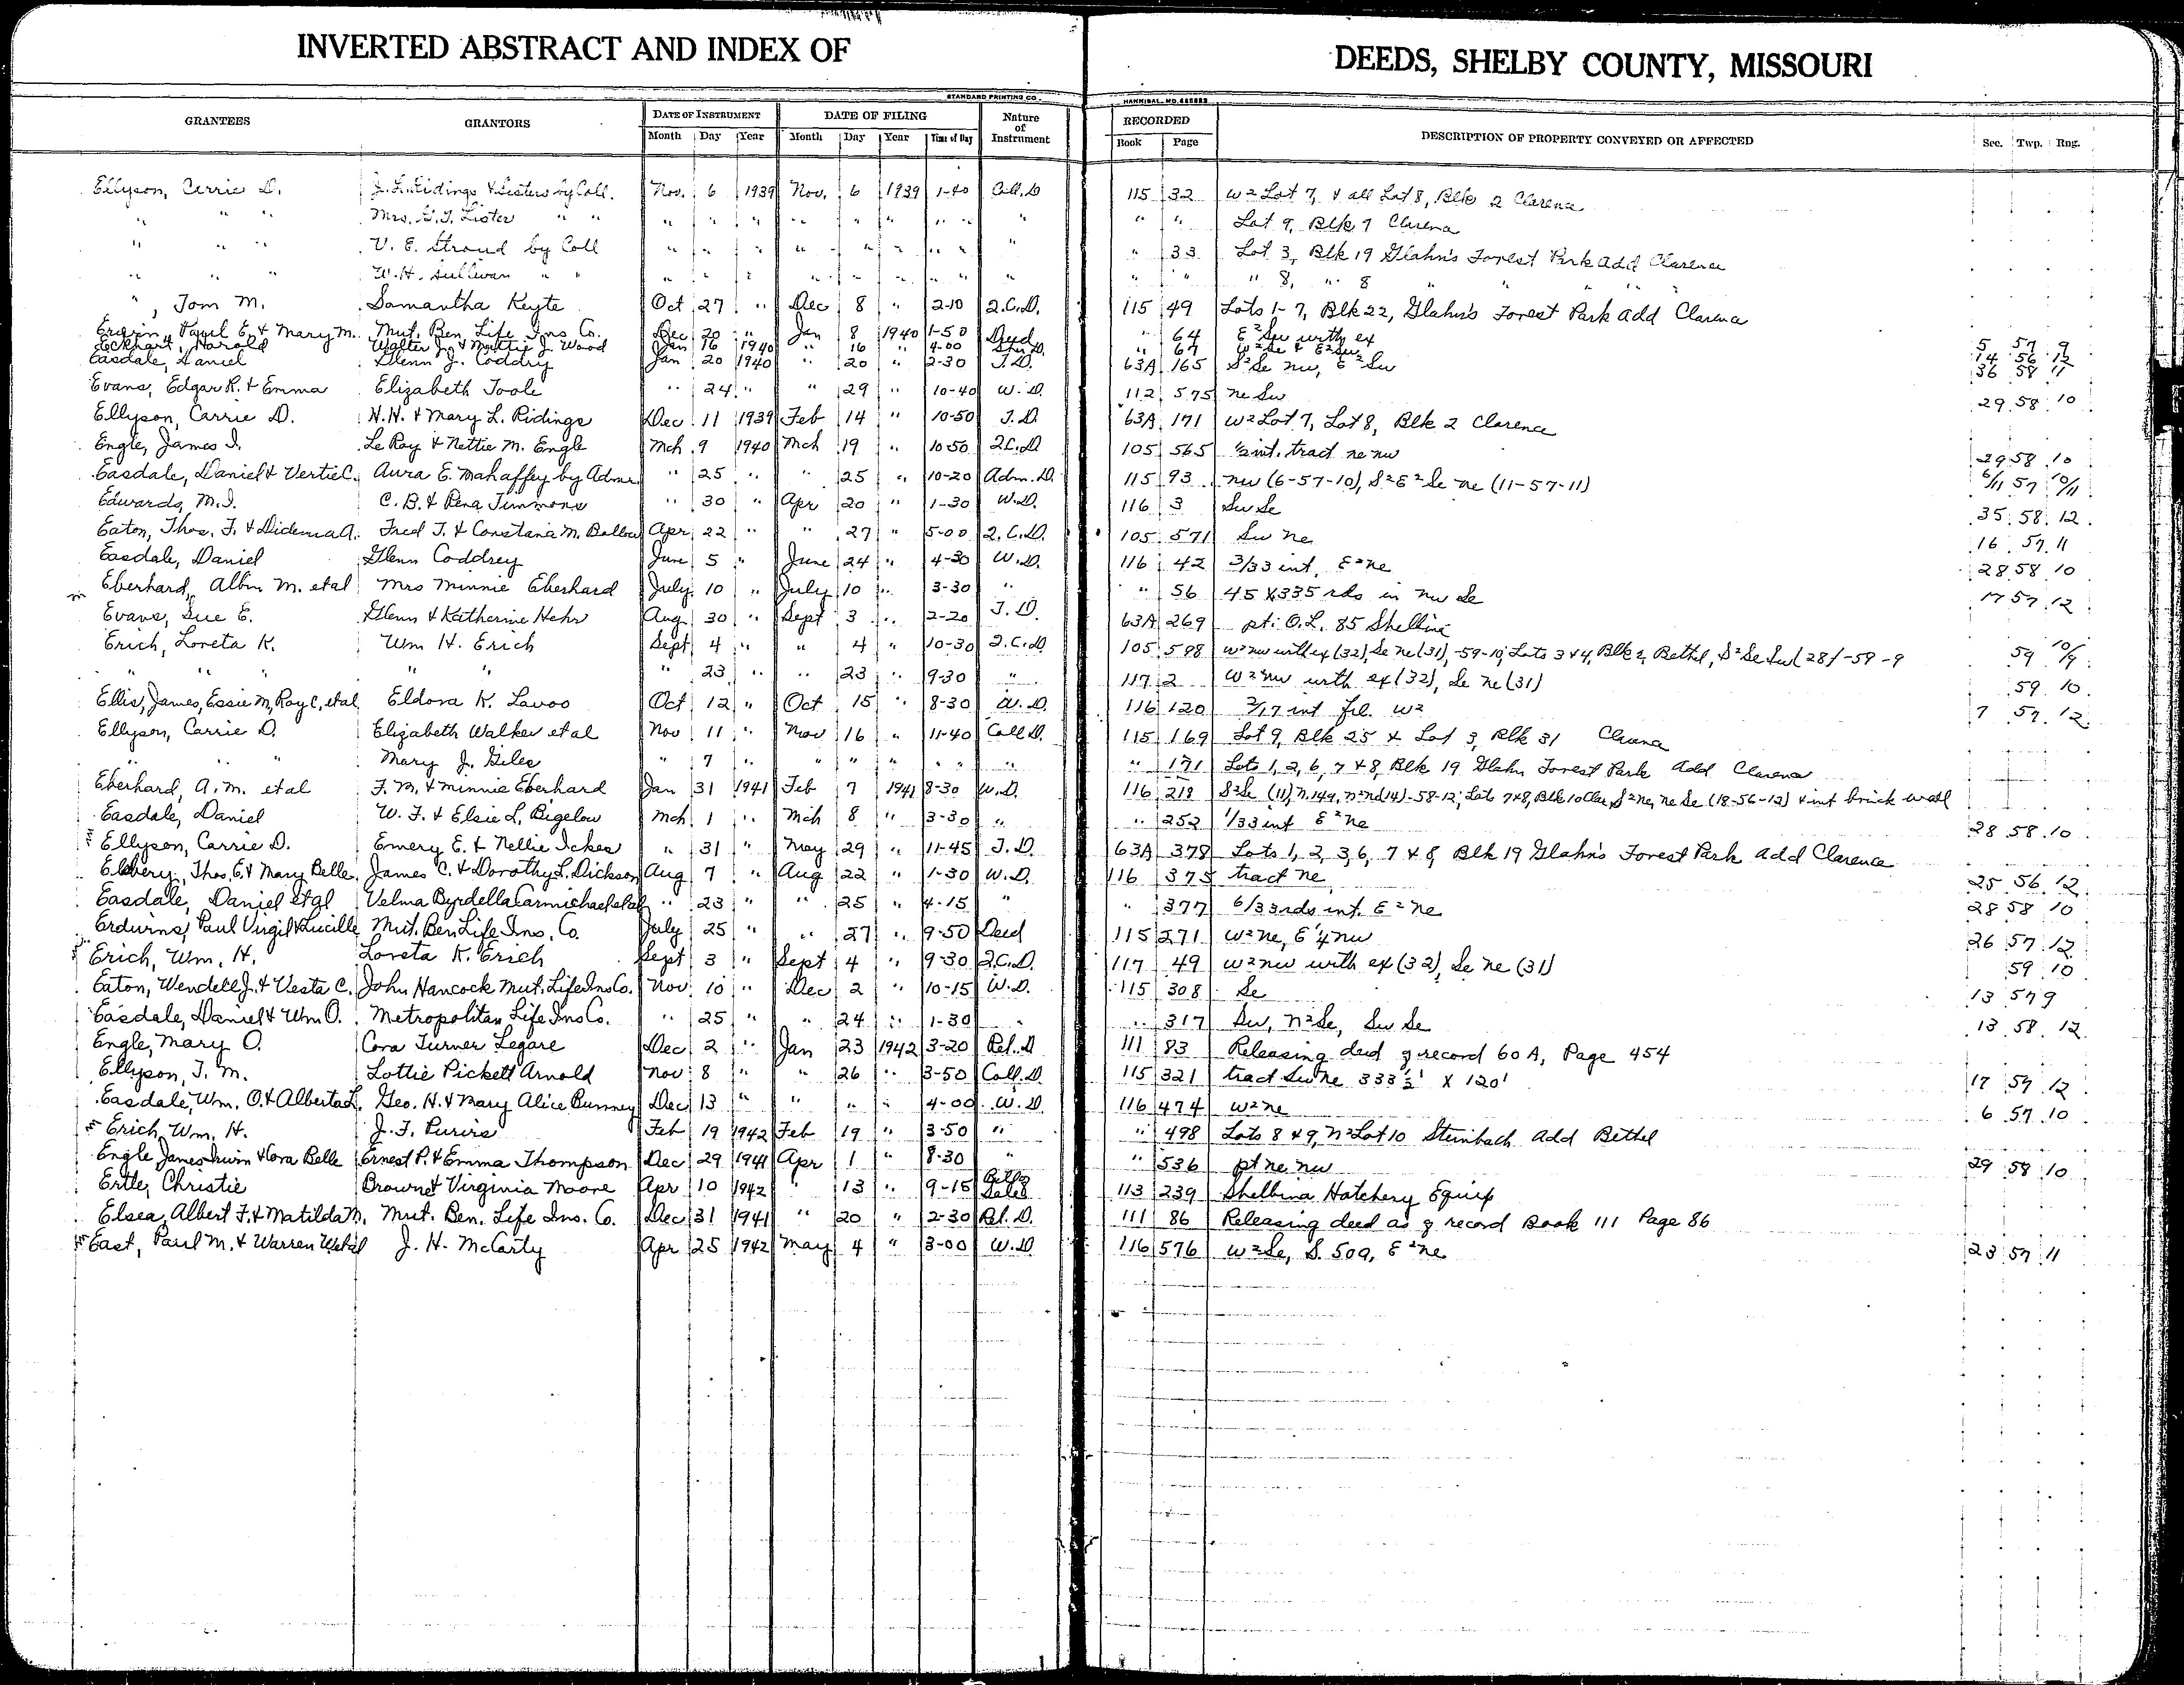 INVERTED ABSTRACT AND INDEX OF DEEDS, SHELBY COUNTY, MISSOURI
STANDARD PRINTING CO. HANNIBAL, MO.
GRANTEES GRANTORS DATE OF INSTRUMENT DATE OF FILING Nature of Instrument RECORDED DESCRIPTION OF PROPERTY CONVEYED OR AFFECTED Sec. Twp. Rng.
Month Day Year Month Day Year Time of Day Book Page
Ellyson, Carrie D. J. L. Ridings & Sisters by Coll. Nov. 6 1939 Nov. 6 1939 1-40 Coll. D 115 32 W2 Lot 7, & all Lot 8, Blk 2 Clarence
" " " Mrs. G. T. Lister " " " " " " " " " " " " Lot 9, Blk 9 Clarence
" " " V. E. Stroud by Coll " " " " " " " " " 33 Lot 3, Blk 19 Glahn's Forest Park Add Clarence
" " " W. H. Sullivan " " " " " " " " " " " " " 8, " 8 " " " "
", Tom M. Samantha Keyte Oct 27 " Dec 8 " 2-10 2.C.D. 115 49 Lots 1-7, Blk 22, Glahn's Forest Park Add Clarence
Paul E. & Mary M. Mut. Ben. Life Ins. Co. Dec 20 " Jan 8 1940 1-50 Deed " 64 E2 Sw with ex 5 57 9
Eckhart, Harold Walter Jr. & Mattie J. Wood Jan 16 1940 " 16 " 4-00 " 67 W2 Se & E2 Sw 14 56 12
Easdale, Daniel Glenn J. Coddry Jan 20 1940 " 20 " 2-30 T.D. 63A 165 S2 Se nw, E2 Sw 36 58 11
Evans, Edgar R. & Emma Elizabeth Toole " 24 " " 29 " 10-40 W.D. 112 575 ne Sw 29 58 10
Ellyson, Carrie D. H. H. & Mary L. Ridings Dec 11 1939 Feb 14 " 10-50 T.D. 63A 171 W2 Lot 7, Lot 8, Blk 2 Clarence
Engle, James I. Le Roy & Nettie M. Engle Mch 9 1940 Mch 19 " 10-50 2C.D 105 565 ½ int. tract ne nw 29 58 10
Easdale, Daniel & Vertie C. Aura E. Mahaffey by Admr " 25 " " 25 " 10-20 Adm. D. 115 93 nw (6-57-10), S2 E2 Se ne (11-57-11) 6/11 57 10/11
Edwards, M. I. C. B. & Rena Timmons " 30 " Apr 20 " 1-30 W.D. 116 3 Sw Se 35 58 12
Eaton, Thos. F. & Didema A. Fred T. & Constana M. Ballow Apr 22 " " 27 " 5-00 2.C.D. 105 571 Sw ne 16 57 11
Easdale, Daniel Glenn Coddrey June 5 " June 24 " 4-30 W.D. 116 42 3/33 int. E2 ne 28 58 10
Eberhard, Albin M. etal Mrs Minnie Eberhard July 10 " July 10 " 3-30 " " 56 45 X 335 rds in nw Se 17 57 12
Evans, Sue E. Glenn & Katherine Hehr Aug 30 " Sept 3 " 2-20 T.D. 63A 269 pt. O.L. 85 Shelbina
Erich, Loreta K. Wm H. Erich Sept 4 " " 4 " 10-30 2.C.D. 105 598 W2 nw with ex (32), Se ne (31), -59-10; Lots 3 & 4, Blk 2, Bethel, S2 Se Sw (28) -59-9 59 10/9
" " " " " " 23 " " 23 " 9-30 " 117 2 W2 nw with ex (32), Se ne (31) 59 10
Ellis, James, Essie M, Roy C, etal Eldora K. Lavoo Oct 12 " Oct 15 " 8-30 W.D. 116 120 2/17 int frl. W2 7 57 12
Ellyson, Carrie D. Elizabeth Walker et al Nov 11 " Nov 16 " 11-40 Coll D. 115 169 Lot 9, Blk 25 & Lot 3, Blk 31 Clarence
" " " Mary J. Giles " 7 " " " " " " " 171 Lots 1, 2, 6, 7 & 8, Blk 19 Glahn Forest Park Add Clarence
Eberhard, A. M. et al F. M. & Minnie Eberhard Jan 31 1941 Feb 7 1941 8-30 W.D. 116 218 S2 Se (11), n. 14a, n2 nd (14)-58-12; Lots 7 & 8, Blk 10 Clar, S2 ne, ne Se (18-56-12) & int brick wall
Easdale, Daniel W. F. & Elsie L. Bigelow Mch 1 " Mch 8 " 3-30 " " 252 1/33 int E2 ne 28 58 10
Ellyson, Carrie D. Emery E. & Nellie Ickes " 31 " May 29 " 11-45 T.D. 63A 378 Lots 1, 2, 3, 6, 7 & 8, Blk 19 Glahn's Forest Park Add Clarence
Thos. E. & Mary Belle James C. & Dorothy L. Dickson Aug 7 " Aug 22 " 1-30 W.D. 116 375 tract ne 25 56 12
Easdale, Daniel et al Velma Byrdella Carmichael et al " 23 " " 25 " 4-15 " " 377 6/33rds int. E2 ne 28 58 10
Erdwins, Paul Virgil & Lucille Mut. Ben Life Ins. Co. July 25 " " 27 " 9-50 Deed 115 271 W2 ne, E¼ nw 26 57 12
Erich, Wm. H. Loreta K. Erich Sept 3 " Sept 4 " 9-30 2.C.D. 117 49 W2 nw with ex (32), Se ne (31) 59 10
Eaton, Wendell J. & Vesta C. John Hancock Mut. Life Ins Co. Nov 10 " Dec 2 " 10-15 W.D. 115 308 Se 13 57 9
Easdale, Daniel & Wm O. Metropolitan Life Ins Co. " 25 " " 24 " 1-30 " " 317 Sw, n2 Se, Sw Se 13 58 12
Engle, Mary O. Cora Turner Legare Dec 2 " Jan 23 1942 3-20 Rel. D 111 83 Releasing deed of record 60 A, Page 454
Ellyson, T. M. Lottie Pickett Arnold Nov 8 " " 26 " 3-50 Coll. D. 115 321 tract Sw ne 333½' X 120' 17 57 12
Easdale, Wm. O. & Alberta L. Geo. H. & Mary Alice Bumney Dec 13 " " " " 4-00 W.D. 116 474 W2 ne 6 57 10
Erich, Wm. H. J. F. Purvis Feb 19 1942 Feb 19 " 3-50 " " 498 Lots 8 & 9, n2 Lot 10 Steinbach Add Bethel
Engle James Irwin & Cora Belle Ernest P. & Emma Thompson Dec 29 1941 Apr 1 " 8-30 " " 536 pt ne nw 29 58 10
Ertle, Christie Brown & Virginia Moore Apr 10 1942 " 13 " 9-15 Bill Sale 113 239 Shelbina Hatchery Equip
Elsea, Albert F. & Matilda M. Mut. Ben. Life Ins. Co. Dec 31 1941 " 20 " 2-30 Rel. D. 111 86 Releasing deed as of record Book 111 Page 86
East, Paul M. & Warren J. H. McCarty Apr 25 1942 May 4 " 3-00 W.D. 116 576 W2 Se, S. 50a, E2 ne 23 57 11